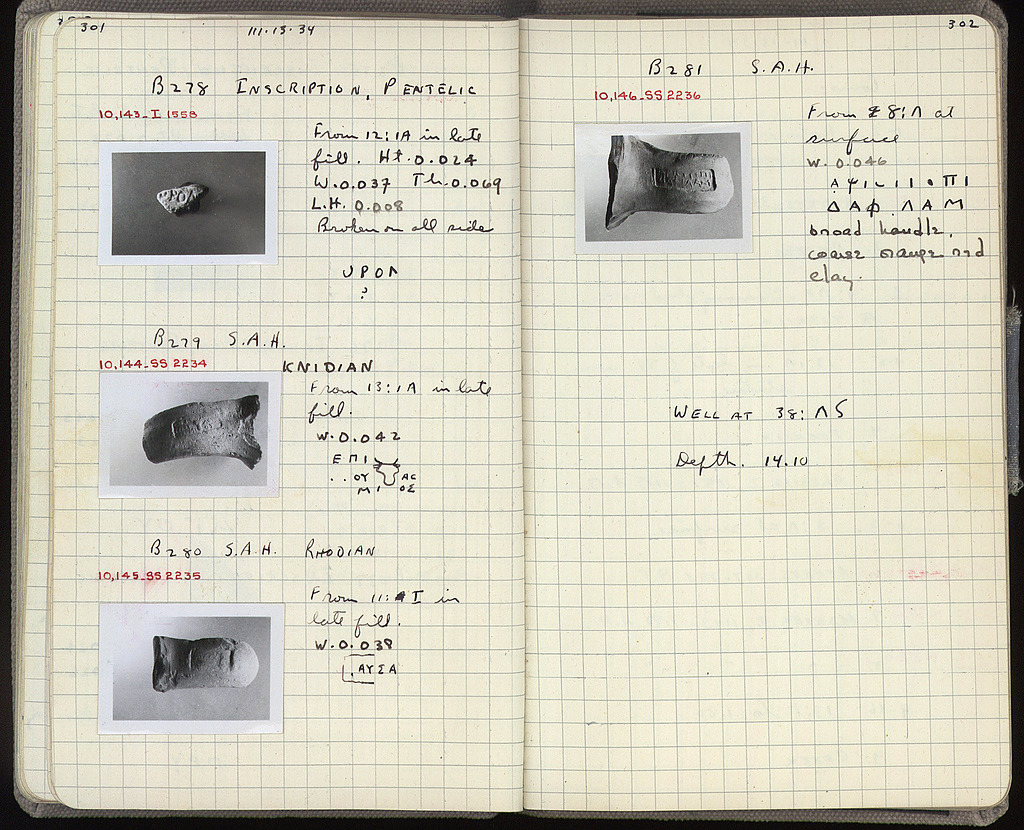 301
111.13.34
B278 INSCRIPTION, PENTELIC
10,143-I 1558
From 12:1A in late
fill. Ht. 0.024
W. 0.037 Th. 0.069
L.H. 0.008
Broken on all side
ΥΡΟΛ
?
B279 S.A.H.
10,144-SS 2234
KNIDIAN
From 13:1A in late
fill.
W. 0.042
ΕΠΙ
. . ΟΥ ΑΣ
Μ Ι ΟΣ
B280 S.A.H. RHODIAN
10,145-SS 2235
From 11: I in
late fill.
W. 0.038
. ΑΥΣΑ
302
B281 S.A.H.
10,146-SS 2236
From 8:Λ at
surface
W. 0.046
ΔΑΦ. ΛΑΜ
broad handle,
coarse orange red
clay.
WELL AT 38: ΛS
Depth. 14.10